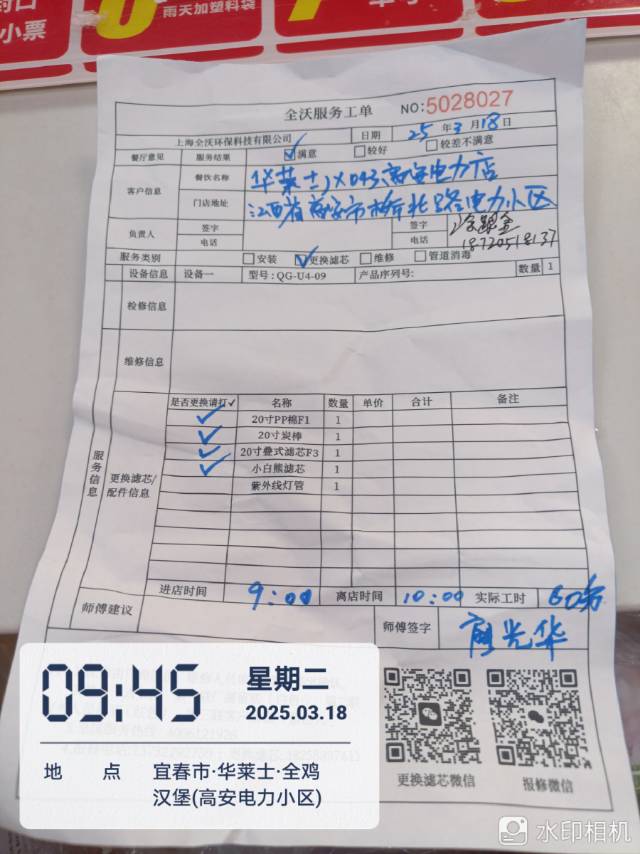 雨天加塑料袋
小票
全沃服务工单 NO:5028027
上海全沃环保科技有限公司 日期 25年3月18日
餐厅意见 服务结果 ✓满意 □较好 □较差不满意
客户信息 餐饮名称 华莱士JX043高安电力店
门店地址 江西省高安市桥北路电力小区
负责人 签字 签字
电话 电话
服务类别 □安装 ✓更换滤芯 □维修 □管道消毒
设备信息 设备一 型号:QG-U4-09 产品序列号: 数量 1
检修信息
维修信息
服务信息
更换滤芯/配件信息
是否更换请打✓ 名称 数量 单价 合计 备注
✓ 20寸PP棉F1 1
✓ 20寸炭棒 1
✓ 20寸叠式滤芯F3 1
✓ 小白熊滤芯 1
紫外线灯管 1
进店时间 9:00 离店时间 10:00 实际工时 60分
师傅建议 师傅签字
更换滤芯微信 报修微信
09:45 星期二
2025.03.18
地 点 宜春市·华莱士·全鸡
汉堡(高安电力小区)
水印相机